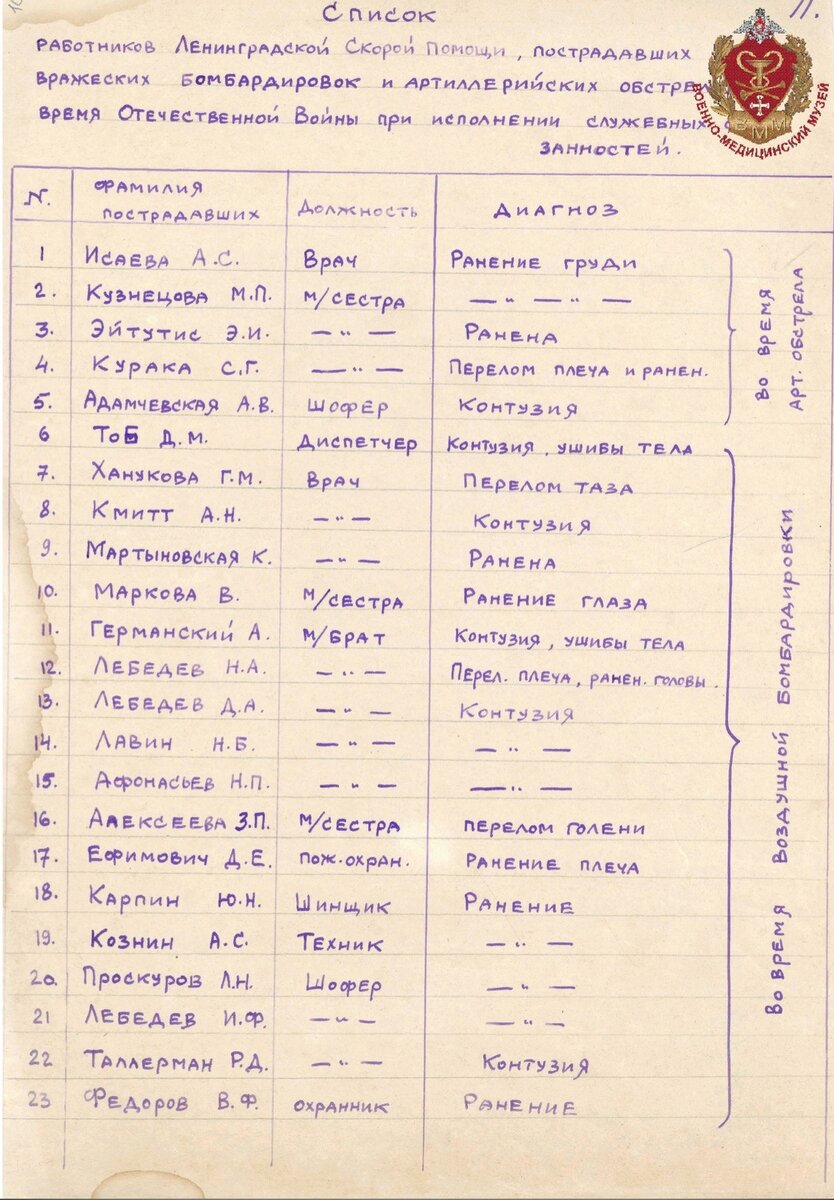 11.
Список
работников Ленинградской Скорой Помощи, пострадавших
вражеских бомбардировок и артиллерийских
время Отечественной Войны при исполнении служебных
занностей.
ВОЕННО-МЕДИЦИНСКИЙ МУЗЕЙ
ВММ
N. Фамилия пострадавших Должность Диагноз
1 Исаева А.С. Врач Ранение груди
2. Кузнецова М.П. м/сестра — " — " —
3. Эйтутис Э.И. — " — Ранена
4. Курака С.Г. — " — Перелом плеча и ранен.
5. Адамчевская А.В. Шофер Контузия
Во время арт. обстрела
6 Тоб Д.М. Диспетчер Контузия, ушибы тела
7. Ханукова Г.М. Врач Перелом таза
8. Кмитт А.Н. — " — Контузия
9. Мартыновская К. — " — Ранена
10. Маркова В. м/сестра Ранение глаза
11. Германский А. м/брат Контузия, ушибы тела
12. Лебедев Н.А. — " — Перел. плеча, ранен. головы.
13. Лебедев Д.А. — " — Контузия
14. Лавин Н.Б. — " — — " —
15. Афонасьев Н.П. — " — — " —
16. Алексеева З.П. м/сестра перелом голени
17. Ефимович Д.Е. пож.охран. Ранение плеча
18. Карпин Ю.Н. Шинщик Ранение
19. Кознин А.С. Техник — " —
20. Проскуров Л.Н. Шофер — " —
21 Лебедев И.Ф. — " — — " —
22 Таллерман Р.Д. — " — Контузия
23 Федоров В.Ф. охранник Ранение
Во время Воздушной Бомбардировки